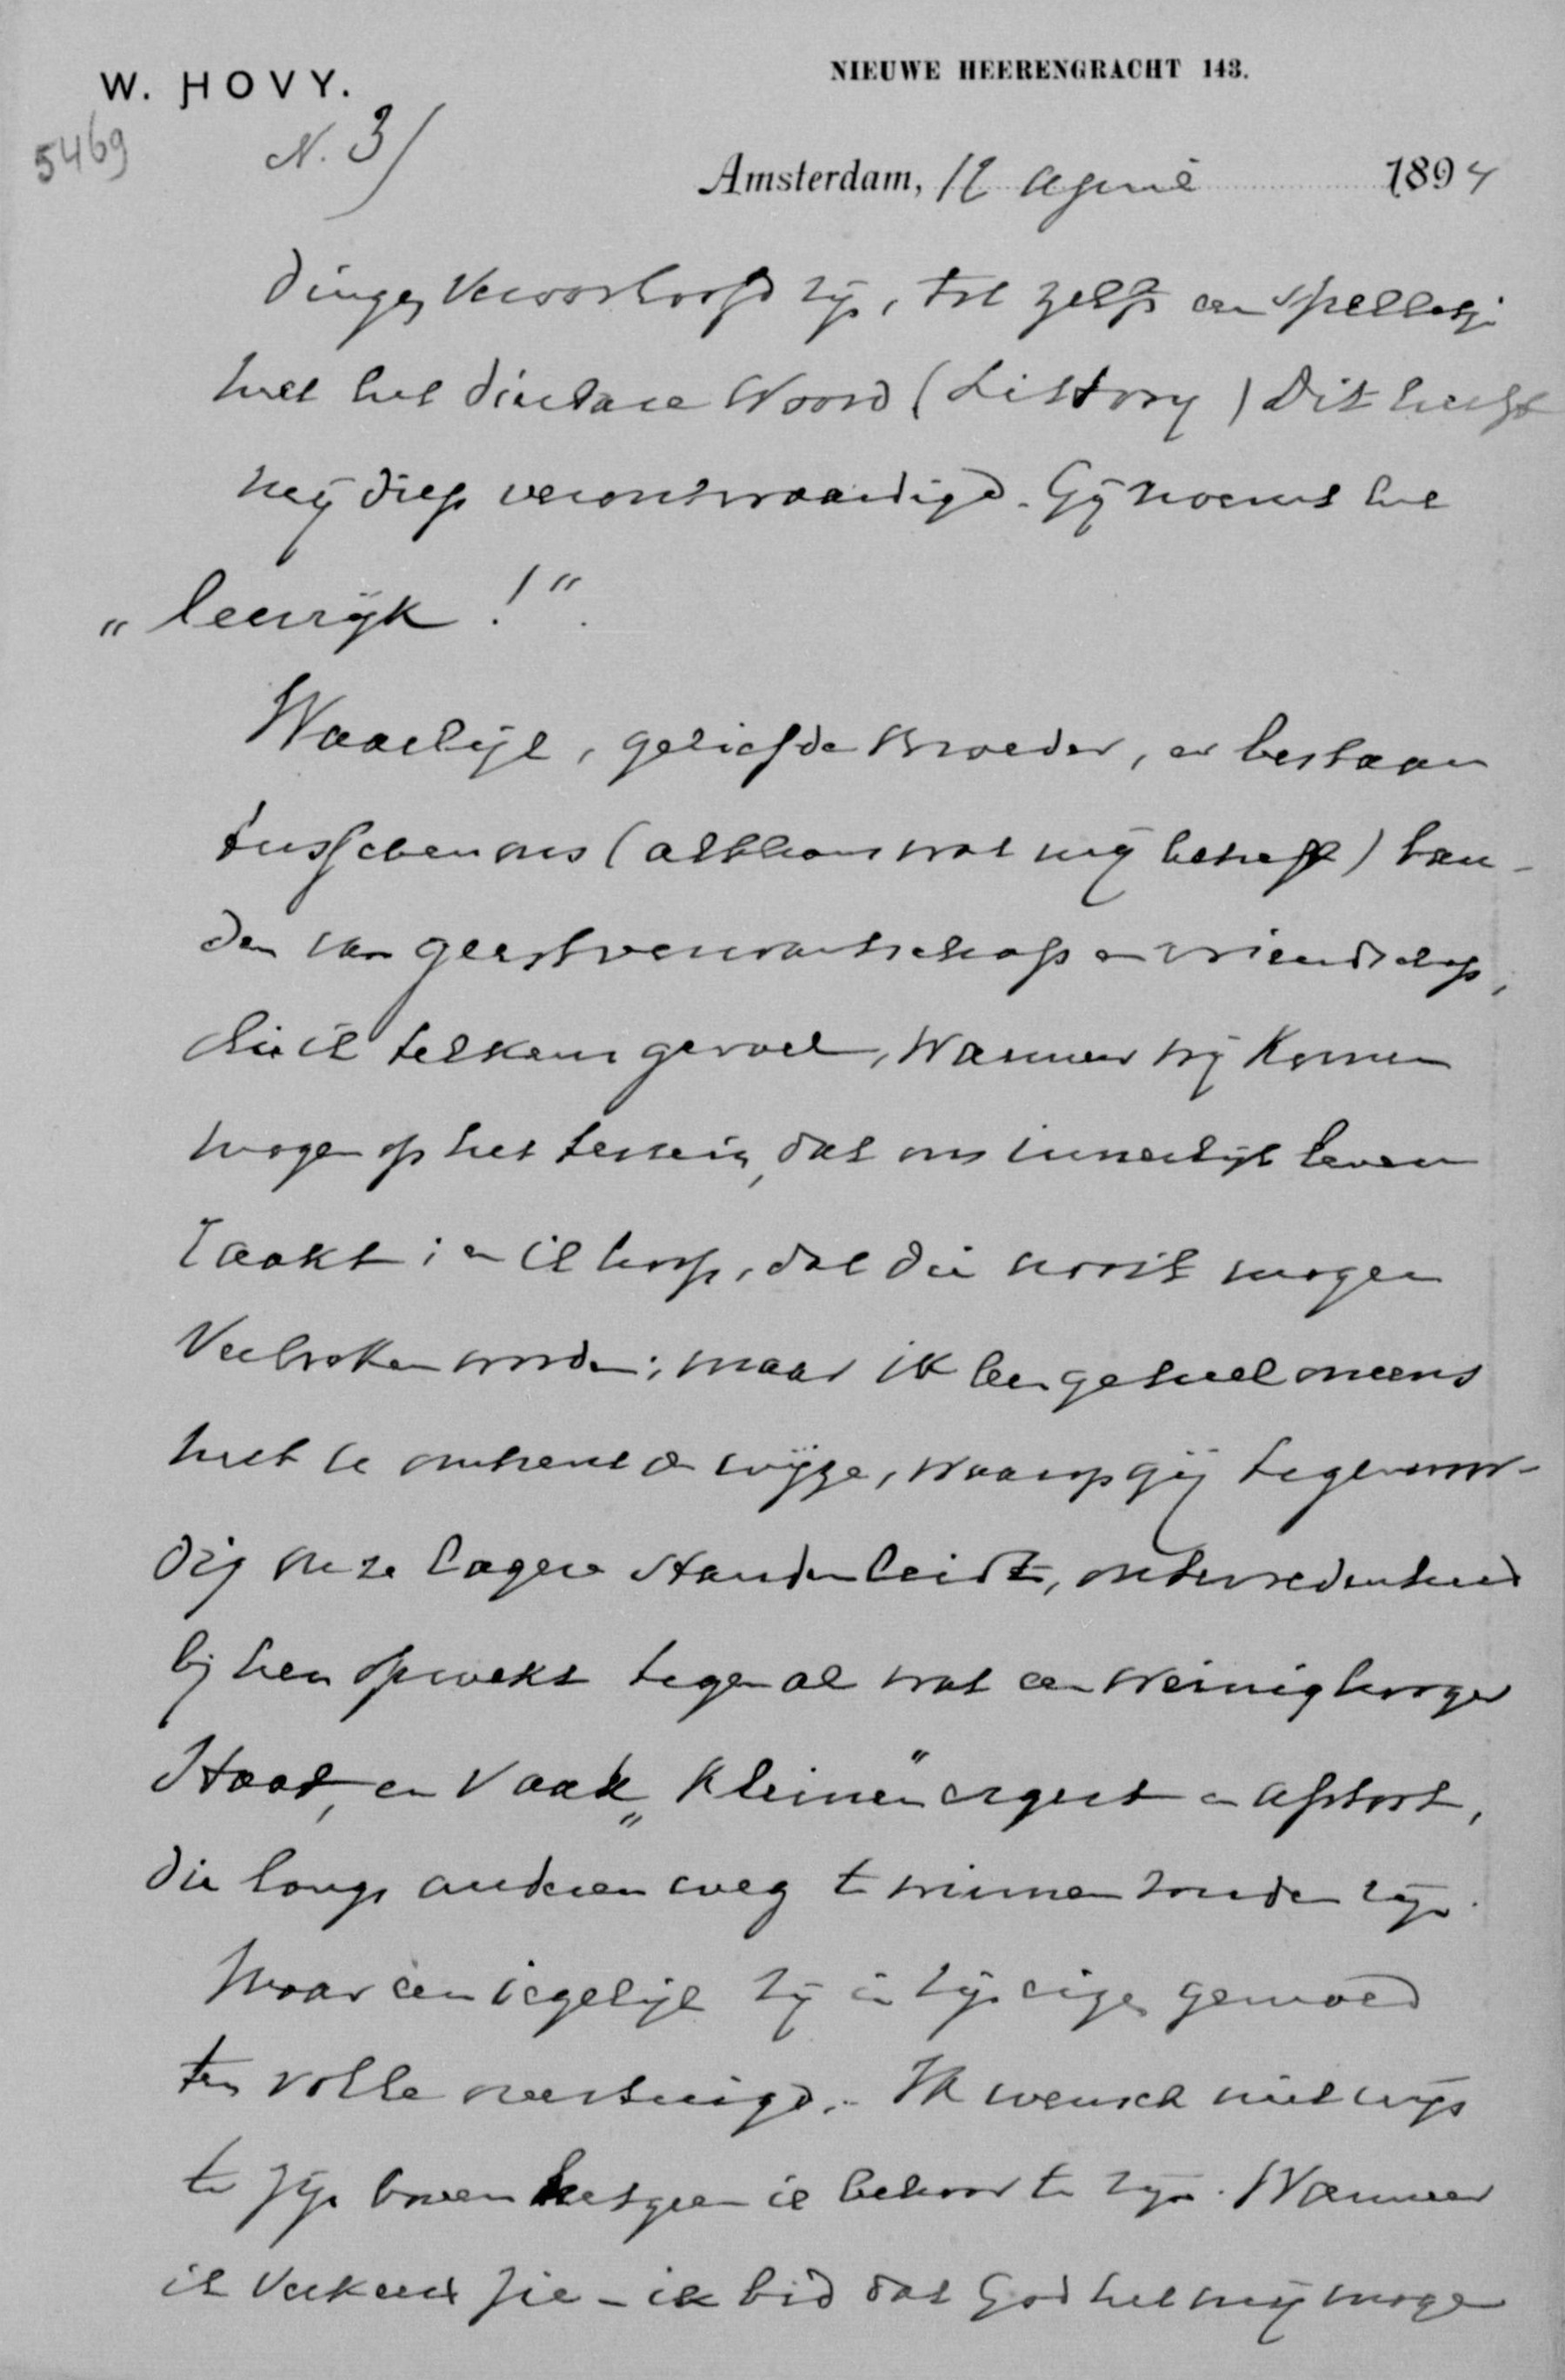 W. HOVY.
NIEUWE HEERENGRACHT 143.
5469
N. 3/
Amsterdam, 12 april 1894
dingen veroorloofd zijn, tot zelfs een spelletje
met het dierbare Woord (Listory) Dit heeft
mij diep verontwaardigd. Gij noemt het
„leerrijk!”.
Waarlijk, geliefde Broeder, er bestaan
tusschen ons (althans wat mij betreft) ban-
den van geestverwantschap en vriendschap,
die ik telkens gevoel, wanneer wij komen
mogen op het terrein, dat ons innerlijk leven
raakt; en ik hoop, dat die nooit mogen
verbroken worden; maar ik ben geheel oneens
met de wijze, waarop gij tegenwoor-
dig onze lagere standen leidt, ontevredenheid
bij hen opwekt tegen al wat een weinig hooger
staat, en vaak „kleinen” ergert en afstoot,
die langs anderen weg te winnen zouden zijn.
Maar een iegelijk zij in zijn eigen gemoed
ten volle overtuigd. Ik wensch niet wijs
te zijn boven hetgeen ik behoor te zijn. Wanneer
ik verkeerd zie - ik bid dat God het mij moge